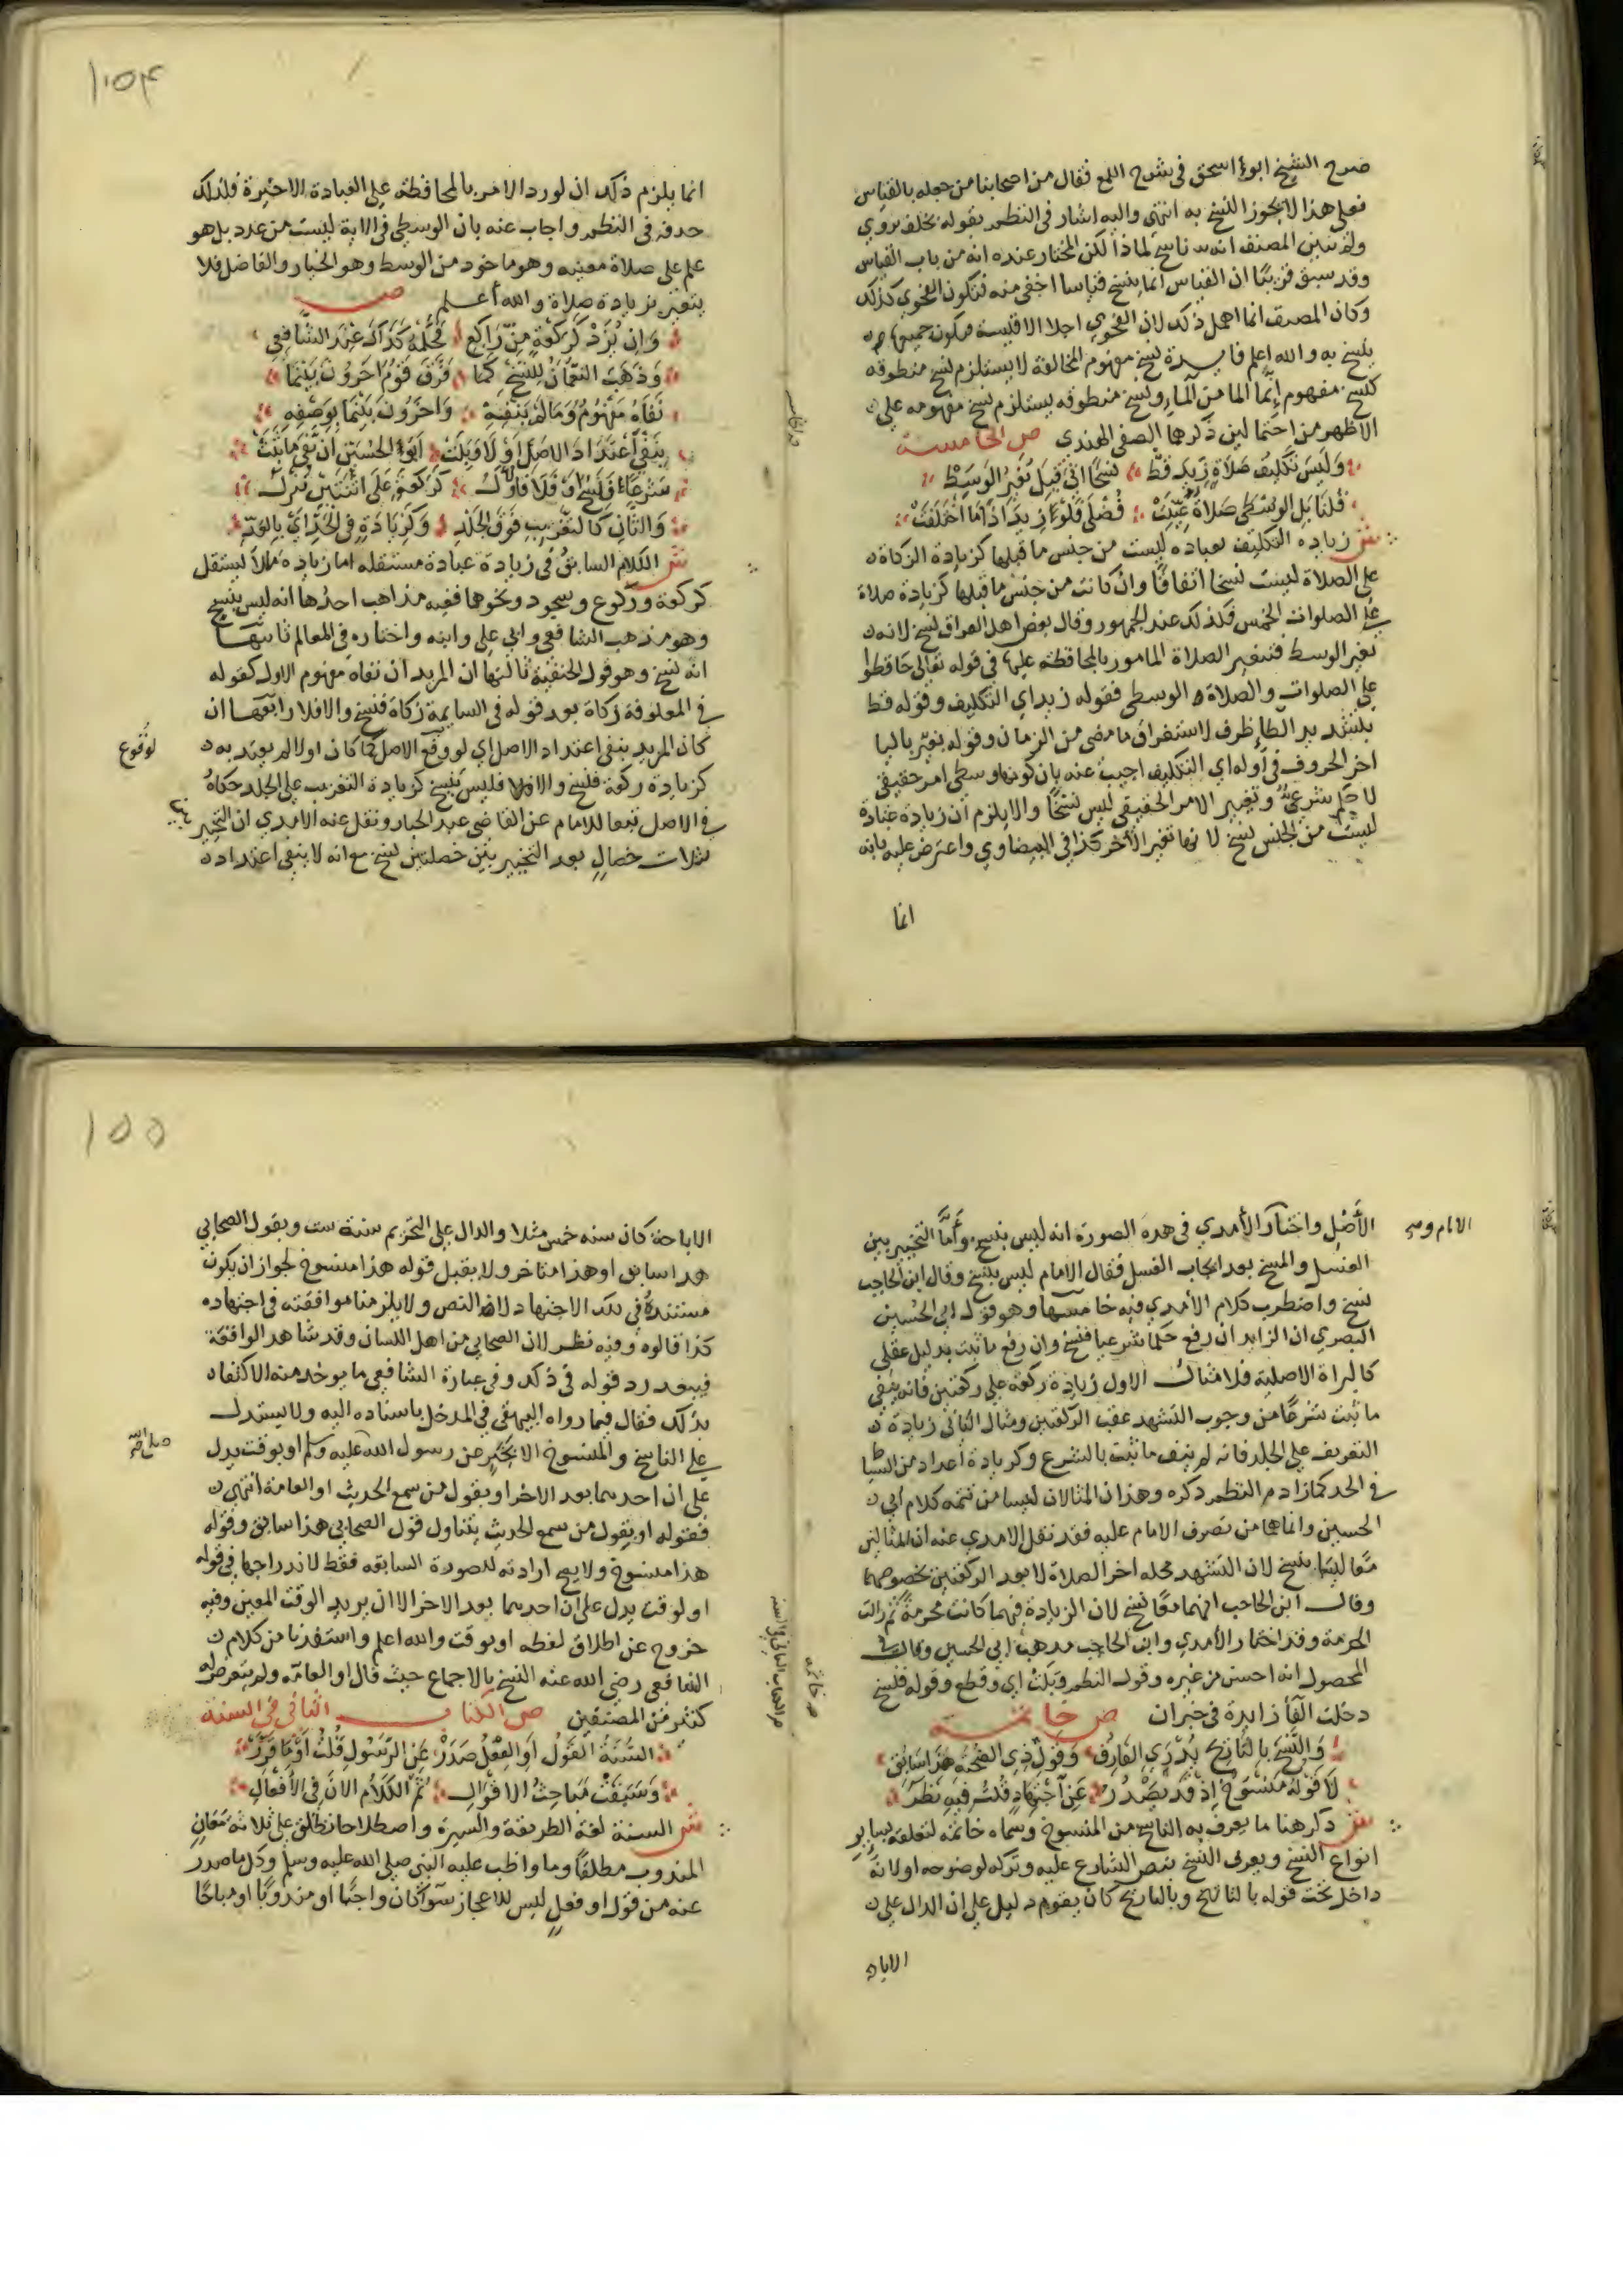 صرح الشيخ ابو اسحق في شرح اللمع فقال من اصحابنا من جعله بالقياس
فعلى هذا لا يجوز النسخ به انتهى واليه اشار في النظم بقوله بخلف مروي
ولم يبين المصنف انه ناسخ لماذا لكن المختار عنده انه من باب القياس
وقد سبق قريبًا ان القياس انما ينسخ قياسا اخفى منه فتكون الفحوى كذلك
وكان المصنف انما اهمل ذلك لان الفحوي اجلا الاقيسة فيكون
ينسخ به والله اعلم فايدة نسخ مفهوم المخالفة لا يستلزم نسخ منطوقه
كنسخ مفهوم إنما الما من الماء ونسخ منطوقه يستلزم نسخ مفهومه على
الاظهر من احتمالين ذكرها الصفي الهندي ص الخامسة
وَلَيسَ تكليفُ صَلاةٍ زيدَ قطّ نسخًا اتى قيل تغير الوسط
قلنا بل الوسطى صلاة عيّنت فضلى فلو زيد اذا ما اختلفت
ش زياده التكليف بعباده ليست من جنس ما قبلها كزيادة الزكاة
على الصلاة ليست نسخا اتفاقًا وان كانت من جنس ما قبلها كزيادة صلاة
على الصلوات الخمس فكذلك عند الجمهور وقال بعض اهل العراق نسخ لانه
تغير الوسط فتتغير الصلاة المامور بالمحافظة عليها في قوله تعالى حافظوا
على الصلوات والصلاة الوسطى فقوله زيد اي التكليف وقوله قط
بتشديد الطا ظرف لاستغراق ما مضى من الزمان وقوله يغير باليا
اخر الحروف في اوله اي التكليف اجيب عنه بان كونها وسطى امر حقيقي
لا حكم شرعي وتغيير الامر الحقيقي ليس نسخًا والا يلزم ان زيادة عبادة
ليست من الجنس نسخ لانها تغير الآخر كذا في البيضاوي واعترض عليه بانه
انما
١٥٤
انما يلزم ذلك ان لو رد الامر بالمحافظة على العبادة الاخيرة فلذلك
حذفه في النظم واجاب عنه بان الوسطى في الاية ليست من عدد بل هو
علم على صلاة معينه وهو ماخوذ من الوسط وهو الخيار والفاضل فلا
يتغير بزيادة صلاة والله أعلم ص
وان يُزَدْ كركعةٍ من راكع فحكمه كذاك عند الشافعي
وذهب النعمان للنسخ كما فرّق قوم اخرون بينما
نفاه مفهوم وما لم ينفه واخرون بينما بوصفه
ينفي اعتداد الاصل او لا وبلت ابو الحسين ان نفي ما يثبت
شرعًا فنسخ او فلا فاول كركعة على اثنتين تترك
والثان كالتغريب فوق الجلد وكزيادة في الحد
ش الكلام السابق في زيادة عبادة مستقله اما زيادة مالا يستقل
كركعة وركوع وسجود ونحوها ففيه مذاهب احدها انه ليس ينسخ
وهو مذهب الشافعي وابي علي وابنه واختاره في المعالم ثانيها
انه نسخ وهو قول الحنفية ثالثها ان المزيد ان نفاه مفهوم الاول كقوله
في المعلوفة زكاة بعد قوله في السايمة زكاة فنسخ والا فلا رابعها ان
كان المزيد ينفي اعتداد الاصل اي لو وقع الاصل كما كان اولا لم يعتد به
لوقوع
كزيادة ركعة فنسخ والا فلا فليس بنسخ كزيادة التغريب على الجلد حكاه
في الاصل تبعا للامام عن القاضي عبد الجبار ونقل عنه الامدي ان التخيير
بثلاث خصالٍ بعد التخيير بين خصلتين نسخ مع انه لا ينفي اعتداده
الأصل واختار الأمدي في هذه الصورة انه ليس بنسخ وأمّا التخيير بين
الغسل والمسح بعد ايجاب الغسل فقال الامام ليس بنسخ وقال ابن الحاجب
نسخ واضطرب كلام الأمدي فيه خامسها وهو قول ابي الحسين
البصري ان الزايد ان رفع حكما شرعيا فنسخ وان رفع ما ثبت بدليل عقلي
كالبراة الاصلية فلا مثال الاول زيادة ركعة على ركعتين فانه ينفي
ما ثبت شرعًا من وجوب التشهد عقب الركعتين ومثال الثاني زيادة
التغريب على الجلد فانه لم ينف ما ثبت بالشرع وكزيادة أعداد من السياط
في الحد كما زاده النظم ذكره وهذان المثالان ليسا من تتمه كلام ابي
الحسين وانما هما من تصرف الامام عليه فقد نقل الامدي عنه ان المثالين
معًا ليسا بنسخ لان التشهد محله اخر الصلاة لا بعد الركعتين بخصوصهما
وقال ابن الحاجب انهما معًا نسخ لان الزيادة فيهما كانت محرمة ثم زالت
الحرمة وقد اختار الأمدي وابن الحاجب مذهب ابي الحسين وقال في
المحصول انه احسن من غيره وقول النظم وبلت اي وقطع وقوله فنسخ
دخلت الفا زايدة في خبران ص خاتمة
والنسخ بالتاريخ يدري العارف وقول ذي الصحبة هذا سابق
لا قوله منسوخ اذ قد يصدر عن اجتهاد قلت فيه نظر
ش ذكر هنا ما يعرف به الناسخ من المنسوخ وسماه خاتمة لتعلقه بساير
انواع النسخ ويعرف النسخ بنص الشارع عليه وتركه لوضوحه اولانه
داخل تحت قوله بالتاريخ وبالتاريخ كان يقوم دليل على ان الدال على
الاباحة
١٥٥
الاباحة كان سنه خمس مثلا والدال على التحريم سنة ست وبقول الصحابي
هذا سابق او هذا متاخر ولا يقبل قوله هذا منسوخ لجواز ان يكون
مستنده في ذلك الاجتهاد لا النص ولا يلزمنا موافقته في اجتهاده
كذا قالوه وفيه نظر لان الصحابي من اهل اللسان وقد شاهد الواقعة
فيبعد رد قوله في ذلك وفي عبارة الشافعي ما يوخذ منه الاكتفاء
بذلك فقال فيما رواه البيهقي في المدخل باسناده اليه ولا يستدل
على الناسخ والمنسوخ الا بخبر عن رسول الله عليه وسلم او بوقت يدل
على ان احدهما بعد الاخر او بقول من سمع الحديث او العامة انتهى
فقوله او بقول من سمع الحديث يتناول قول الصحابي هذا سابق وقوله
هذا منسوخ ولا يصح ارادته للصورة السابقه فقط لاندراجها في قوله
او لوقت يدل على ان احدهما بعد الاخر الا ان يريد الوقت المعين وفيه
خروج عن اطلاق لفظه او بوقت والله اعلم واستفدنا من كلام
الشافعي رضي الله عنه النسخ بالاجماع حيث قال او العامه ولم يتعرض له
كثير من المصنفين ص الكتاب الثاني في السنة
السنة القول او الفعل صدر عن الرسول قلت او ما قرر
وسبقت مباحث الاقوال ثم الكلام الان في الأفعال
ش السنة لغة الطريقة والسيرة واصطلاحا تطلق على ثلاثة معانٍ
المندوب مطلقًا وما واظب عليه النبي صلى الله عليه وسلم وكل ما صدر
عنه من قول او فعلٍ ليس للاعجاز سوآ كان واجبًا او مندوبًا او مباحًا